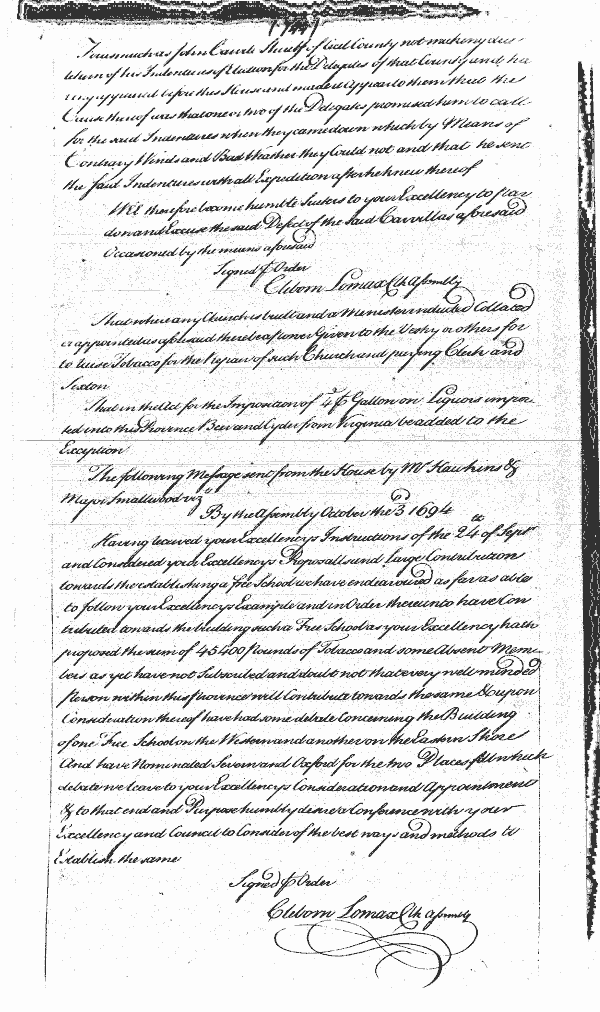 (744)
Forasmuch as John Carvile Sheriff of Cecil County not making due
return of his Indentures of Election for the Delegates of that County and ha
ving appeared before this House and made it Appear to them that the
Cause thereof was that one or two of the Delegates promised him to call
for the said Indentures when they came down which by Means of
Contrary Winds and Bad Weather they Could not and that he sent
the said Indentures with all Expedition after he knew thereof
We therefore become humble Suitors to your Excellency to Par
don and Excuse the said Defect of the said Carvill as aforesaid
Occasioned by the means aforesaid
Signed ⅌ Order
Cleborn Lomax Clk Assembly
That where any Church is built and a Minister inducted Collated
or appointed as aforesaid there be a Power Given to the Vestry or others for
to raise Tobacco for the Repair of such Church and paying Clerk and
Sexton
That in the Act for the Imposition of 4d ⅌ Gallon on Liquors impor
ted into this Province Beer and Cyder from Virginia be added to the
Exception
The following Message sent from the House by Mr Hawkins &
Major Smallwood viz
By the Assembly October the 3d 1694
Having received your Excellencys Instructions of the 24th of Septr
and Considered your Excellencys Proposalls and large Contribution
towards the establishing a free School we have endeavoured as far as able
to follow your Excellencys Example and in Order thereunto have Con
tributed towards the building such a Free School as your Excellency hath
proposed the sum of 45400 Pounds of Tobacco and some Absent Mem
bers as yet have not Subscribed and doubt not that every well minded
Person within this Province will Contribute towards the same & upon
Consideration thereof have had some debate Concerning the Building
of one Free School on the Western and another on the Eastern Shore
And have Nominated Severn and Oxford for the two Places all which
debate we leave to your Excellencys Consideration and Appointment
& to that end and Purpose humbly desire a Conference with your
Excellency and Council to Consider of the best ways and methods to
Establish the same
Signed ⅌ Order
Cleborn Lomax Clk Assembly